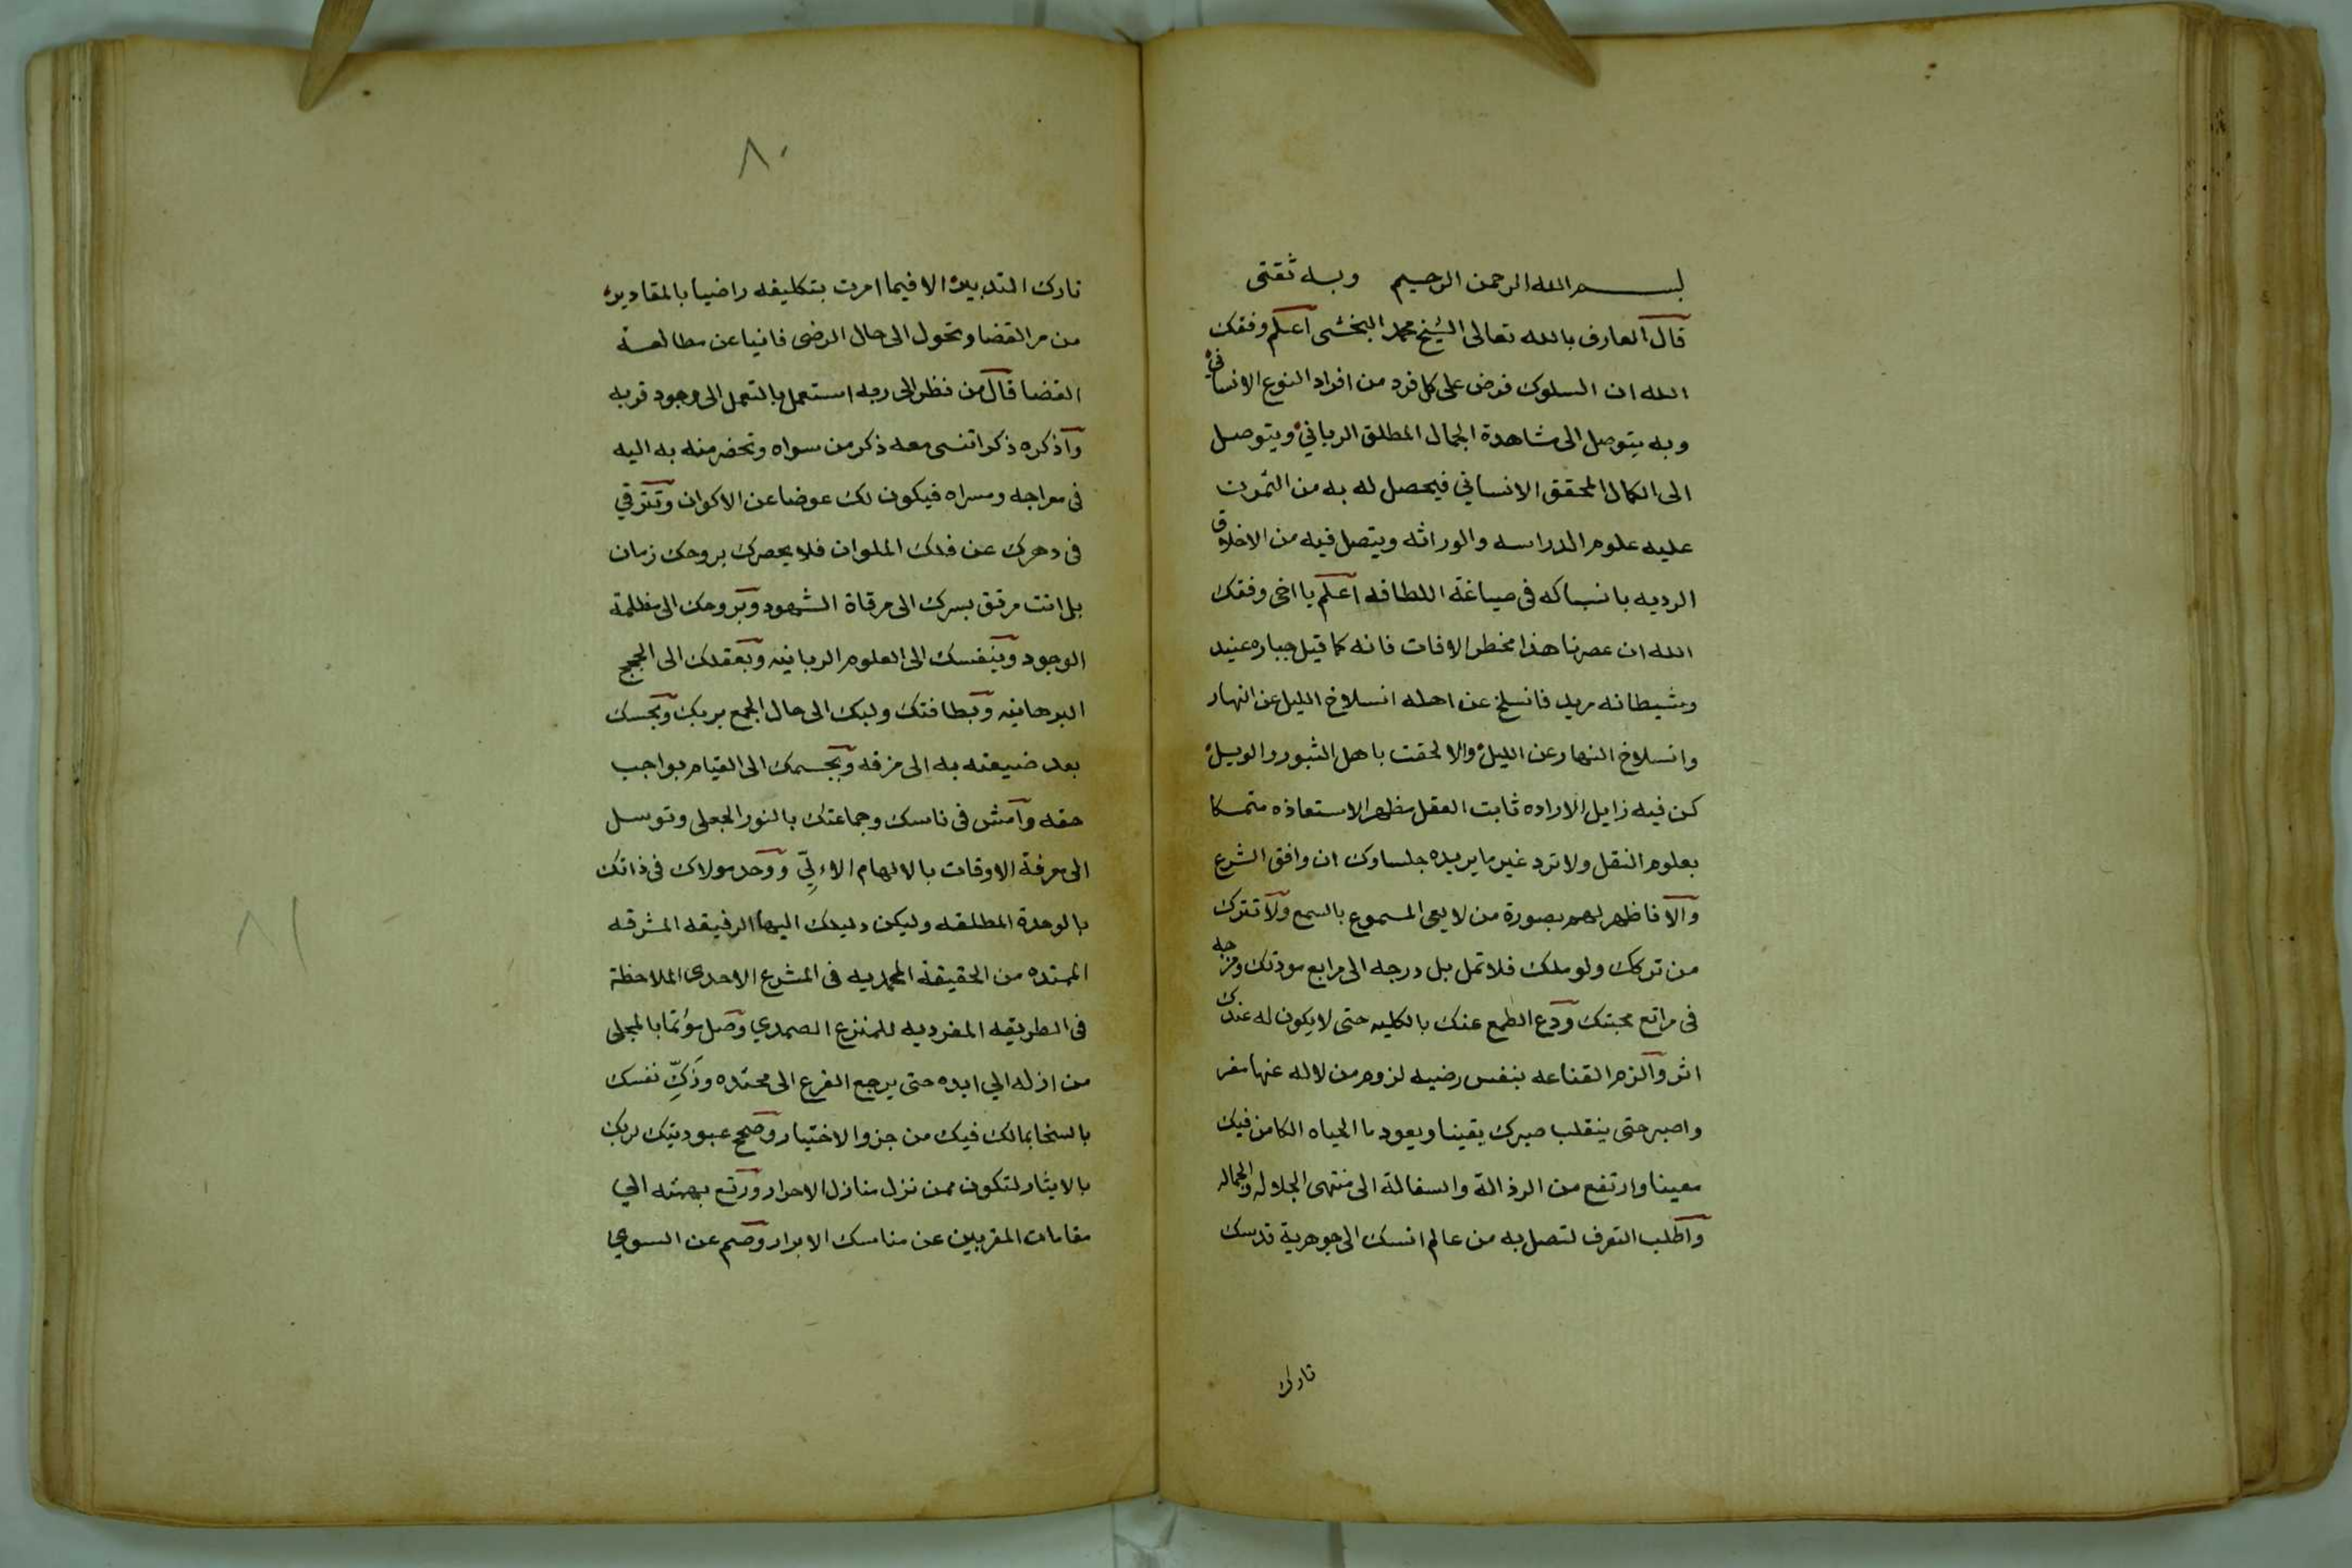 بسم الله الرحمن الرحيم وبه ثقتى
قال العارف بالله تعالى الشيخ محمد البخشى اعلم وفقك
الله ان السلوك فرض على كل فرد من افراد النوع الانسانى
وبه يتوصل الى مشاهدة الجمال المطلق الرباني ويتوصل
الى الكمال المحقق الانساني فيحصل له به من التمرن
عليه علوم الدراسه والوراثه ويتصل فيه من الاخلاق
الرديه بانسباكه فى صياغة اللطافه اعلم يا اخى وفقك
الله ان عصرنا هذا مخطر الافات فانه كما قيل جباره عنيد
وشيطانه مريد فانسلخ عن اهله انسلاخ الليل عن النهار
وانسلاخ النهار عن الليل والا لحقت باهل الثبور والويل
كن فيه زايل الاراده ثابت العقل مظهر الاستعاذه متمسكا
بعلوم النقل ولا ترد غير ما يريده جلساوك ان وافق الشرع
والا فاظهر لهم بصورة من لا يعى المسموع بالسمع ولا تترك
من تركك ولو ملك فلا تمل بل درجه الى مرابع مودتك ومزجه
فى مراتع محبتك ودع الطمع عنك بالكليه حتى لا يكون له عندك
اثر والزم القناعه بنفس رضيه لزوم من لا له عنها مفر
واصبر حتى ينقلب صبرك يقينا ويعود ما الحياه الكامن فيك
معينا وارتفع من الرذالة والسفالة الى منتهى الجلاله والجماله
واطلب التعرف لتصل به من عالم انسك الى جوهرية قدسك
تارك
٨٠
تارك التدبير الا فيما امرت بتكليفه راضيا بالمقادير
من مر القضا وتحول الى حال الرضى فانيا عن مطالعة
القضا قال من نظر الى ربه استعمل بالتعمل الى وجود قربه
واذكره ذكرا تنسى معه ذكر من سواه وتحضر منه به اليه
فى معراجه ومسراه فيكون لك عوضا عن الاكوان وتترقي
فى دهرك عن فلك الملوان فلا يحصرك بروحك زمان
بل انت مرتق بسرك الى مرقاة الشهود وبروحك الى مظلمة
الوجود وبنفسك الى العلوم الربانيه وبعقلك الى الحجج
البرهانيه وبطافتك ولبك الى حال الجمع بربك وبحسك
بعد ضيعته به الى مزقه وبجسمك الى القيام بواجب
حقه وامش فى ناسك وجماعتك بالنور الجعلى وتوسل
الى معرفة الاوقات بالالهام الاءلِّي ووحد مولاك فى ذاتك
بالوحدة المطلقه وليكن دليلك اليها الرفيقه المشرقه
الممتده من الحقيقة المحمديه فى المشرع الاحدى الملاحظة
فى الطريقه المفرديه للمنزع الصمدي وصل مؤتما بالمجلى
من ازله الي ابده حتى يرجع الفرع الى محتده وزكِّ نفسك
بالسخا بمالك فيك من جزو الاختيار وصحح عبوديتك لربك
بالايثار لتكون ممن نزل منازل الاحرار ورتع بهمته الي
مقامات المقربين عن مناسك الابرار وصم عن السوي
٨١